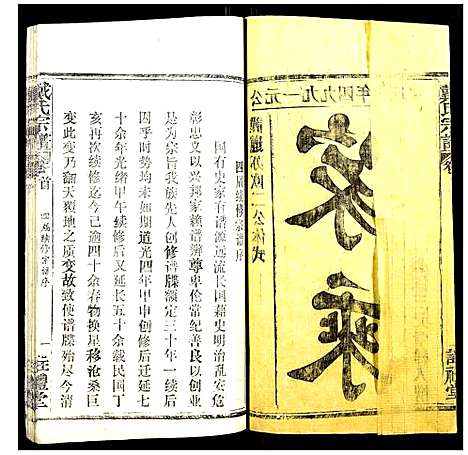 四届续修宗谱序
国有史家有谱源远流长国籍史明治乱安危
彰忠义以兴邦家赖谱辨尊卑伦常纪善良以创
业为宗旨我族先人创修谱牒额定三十年一续后
因乎时势均未如期道光四年甲申创修后迁延七
十余年光绪甲午续修后又延长五十余载民囯丁
亥再次续修迄今已逾四十余春物换星移沧桑巨
变此变乃翻天覆地之质变故致使谱牒殆尽今清
戴氏宗谱
首
四届续修宗谱序
一
注礼堂
公元一九九四年
家乘
戴氏宗谱
注礼堂